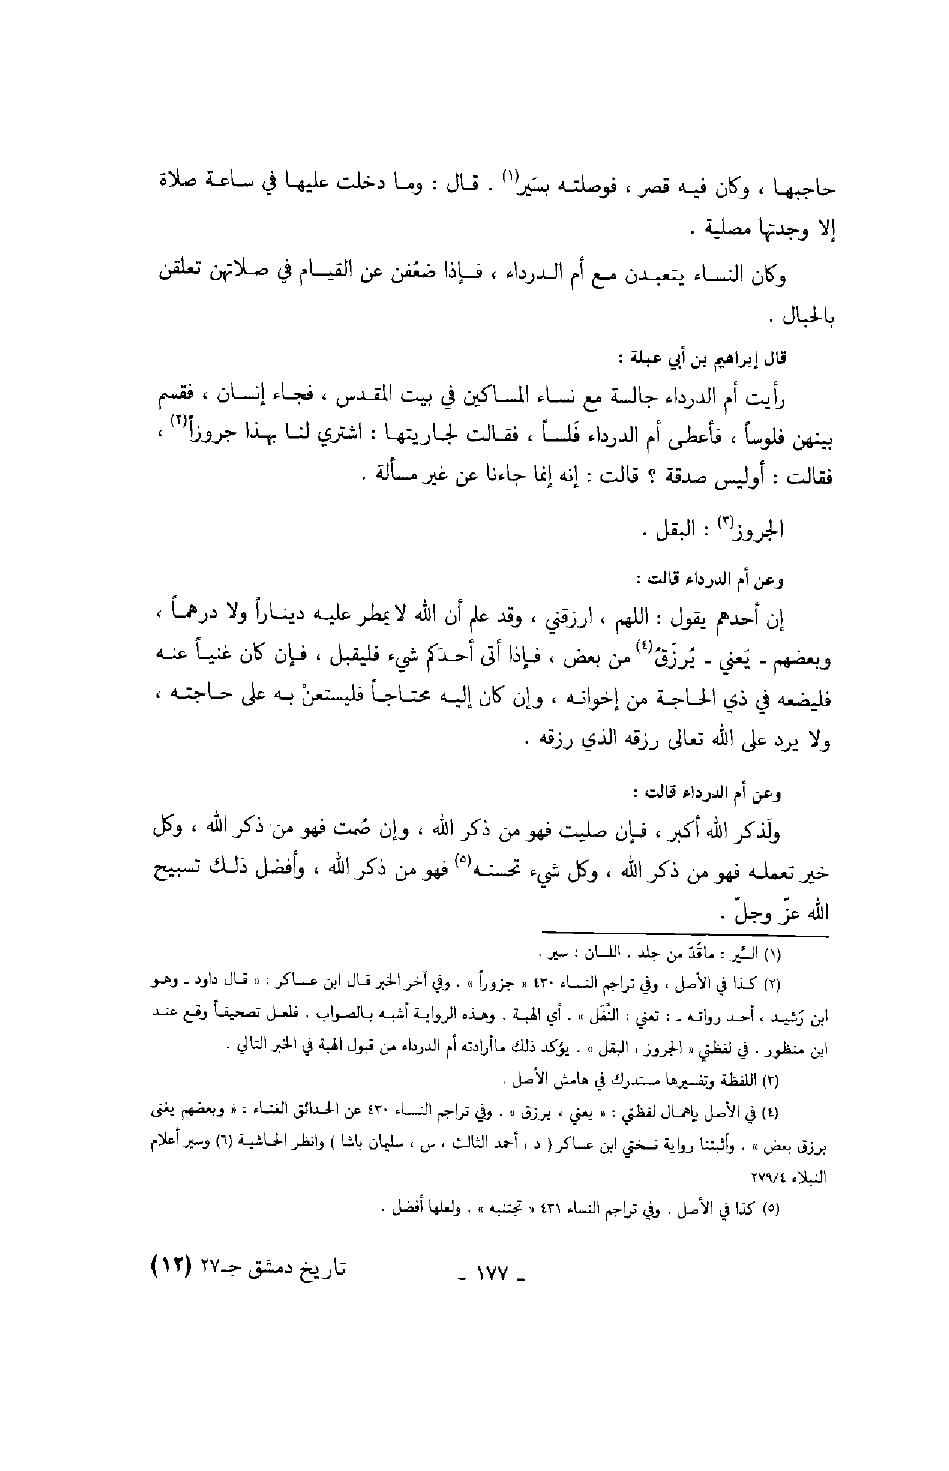 حاجبها ، وكان فيه قصر ، فوصلته بسَير(١) . قال : وما دخلت عليها في ساعة صلاة
إلا وجدتها مصلية .
وكان النساء يتعبدن مع أم الدرداء ، فإذا ضعُفن عن القيام في صلاتهن تعلقن
بالحبال .
قال إبراهيم بن أبي عبلة :
رأيت أم الدرداء جالسة مع نساء المساكين في بيت المقدس ، فجاء إنسان ، فقسم
بينهن فلوساً ، فأعطى أم الدرداء فَلساً ، فقالت لجاريتها : اشتري لنا بهذا جروزاً(٢) ،
فقالت : أوليس صدقة ؟ قالت : إنه إنما جاءنا عن غير مسألة .
الجروز(٣) : البقل .
وعن أم الدرداء قالت :
إن أحدهم يقول : اللهم ، ارزقني ، وقد علم أن الله لا يمطر عليه ديناراً ولا درهماً ،
وبعضهم ـ يَعني ـ يُرزَقُ(٤) من بعض ، فإذا أتى أحدَكم شيء فليقبل ، فإن كان غنياً عنه
فليضعه في ذي الحاجة من إخوانه ، وإن كان إليه محتاجاً فليستعنْ به على حاجته ،
ولا يرد على الله تعالى رزقه الذي رزقه .
وعن أم الدرداء قالت :
ولَذكر الله أكبر ، فإن صليت فهو من ذكر الله ، وإن صُمت فهو من ذكر الله ، وكل
خير تعمله فهو من ذكر الله ، وكل شيء تحسنه(٥) فهو من ذكر الله ، وأفضل ذلك تسبيح
الله عزّ وجلّ .
(١) السَّير : ماقُدّ من جلد . اللسان : سير .
(٢) كذا في الأصل ، وفي تراجم النساء ٤٣٠ « جزوراً » . وفي آخر الخبر قال ابن عساكر : « قال داود ـ وهو
ابن رُشيد ، أحد رواته ـ : تعني : النَّفَل » . أي الهبة . وهذه الرواية أشبه بالصواب . فلعل تصحيفاً وقع عند
ابن منظور . في لفظتي « الجروز ، البقل » . يؤكد ذلك ماأرادته أم الدرداء من قبول الهبة في الخبر التالي .
(٣) اللفظة وتفسيرها مستدرك في هامش الأصل .
(٤) في الأصل بإهمال لفظتي : « يعني ، يرزق » . وفي تراجم النساء ٤٣٠ عن الحدائق الغناء : « وبعضهم يغنى
برزق بعض » . وأثبتنا رواية نسختي ابن عساكر ( د ، أحمد الثالث ، س ، سليمان باشا ) وانظر الحاشية (٦) وسير أعلام
النبلاء ٢٧٩/٤
(٥) كذا في الأصل . وفي تراجم النساء ٤٣١ « تجتنبه » . ولعلها أفضل .
ـ ١٧٧ ـ تاريخ دمشق جـ٢٧ (١٢)